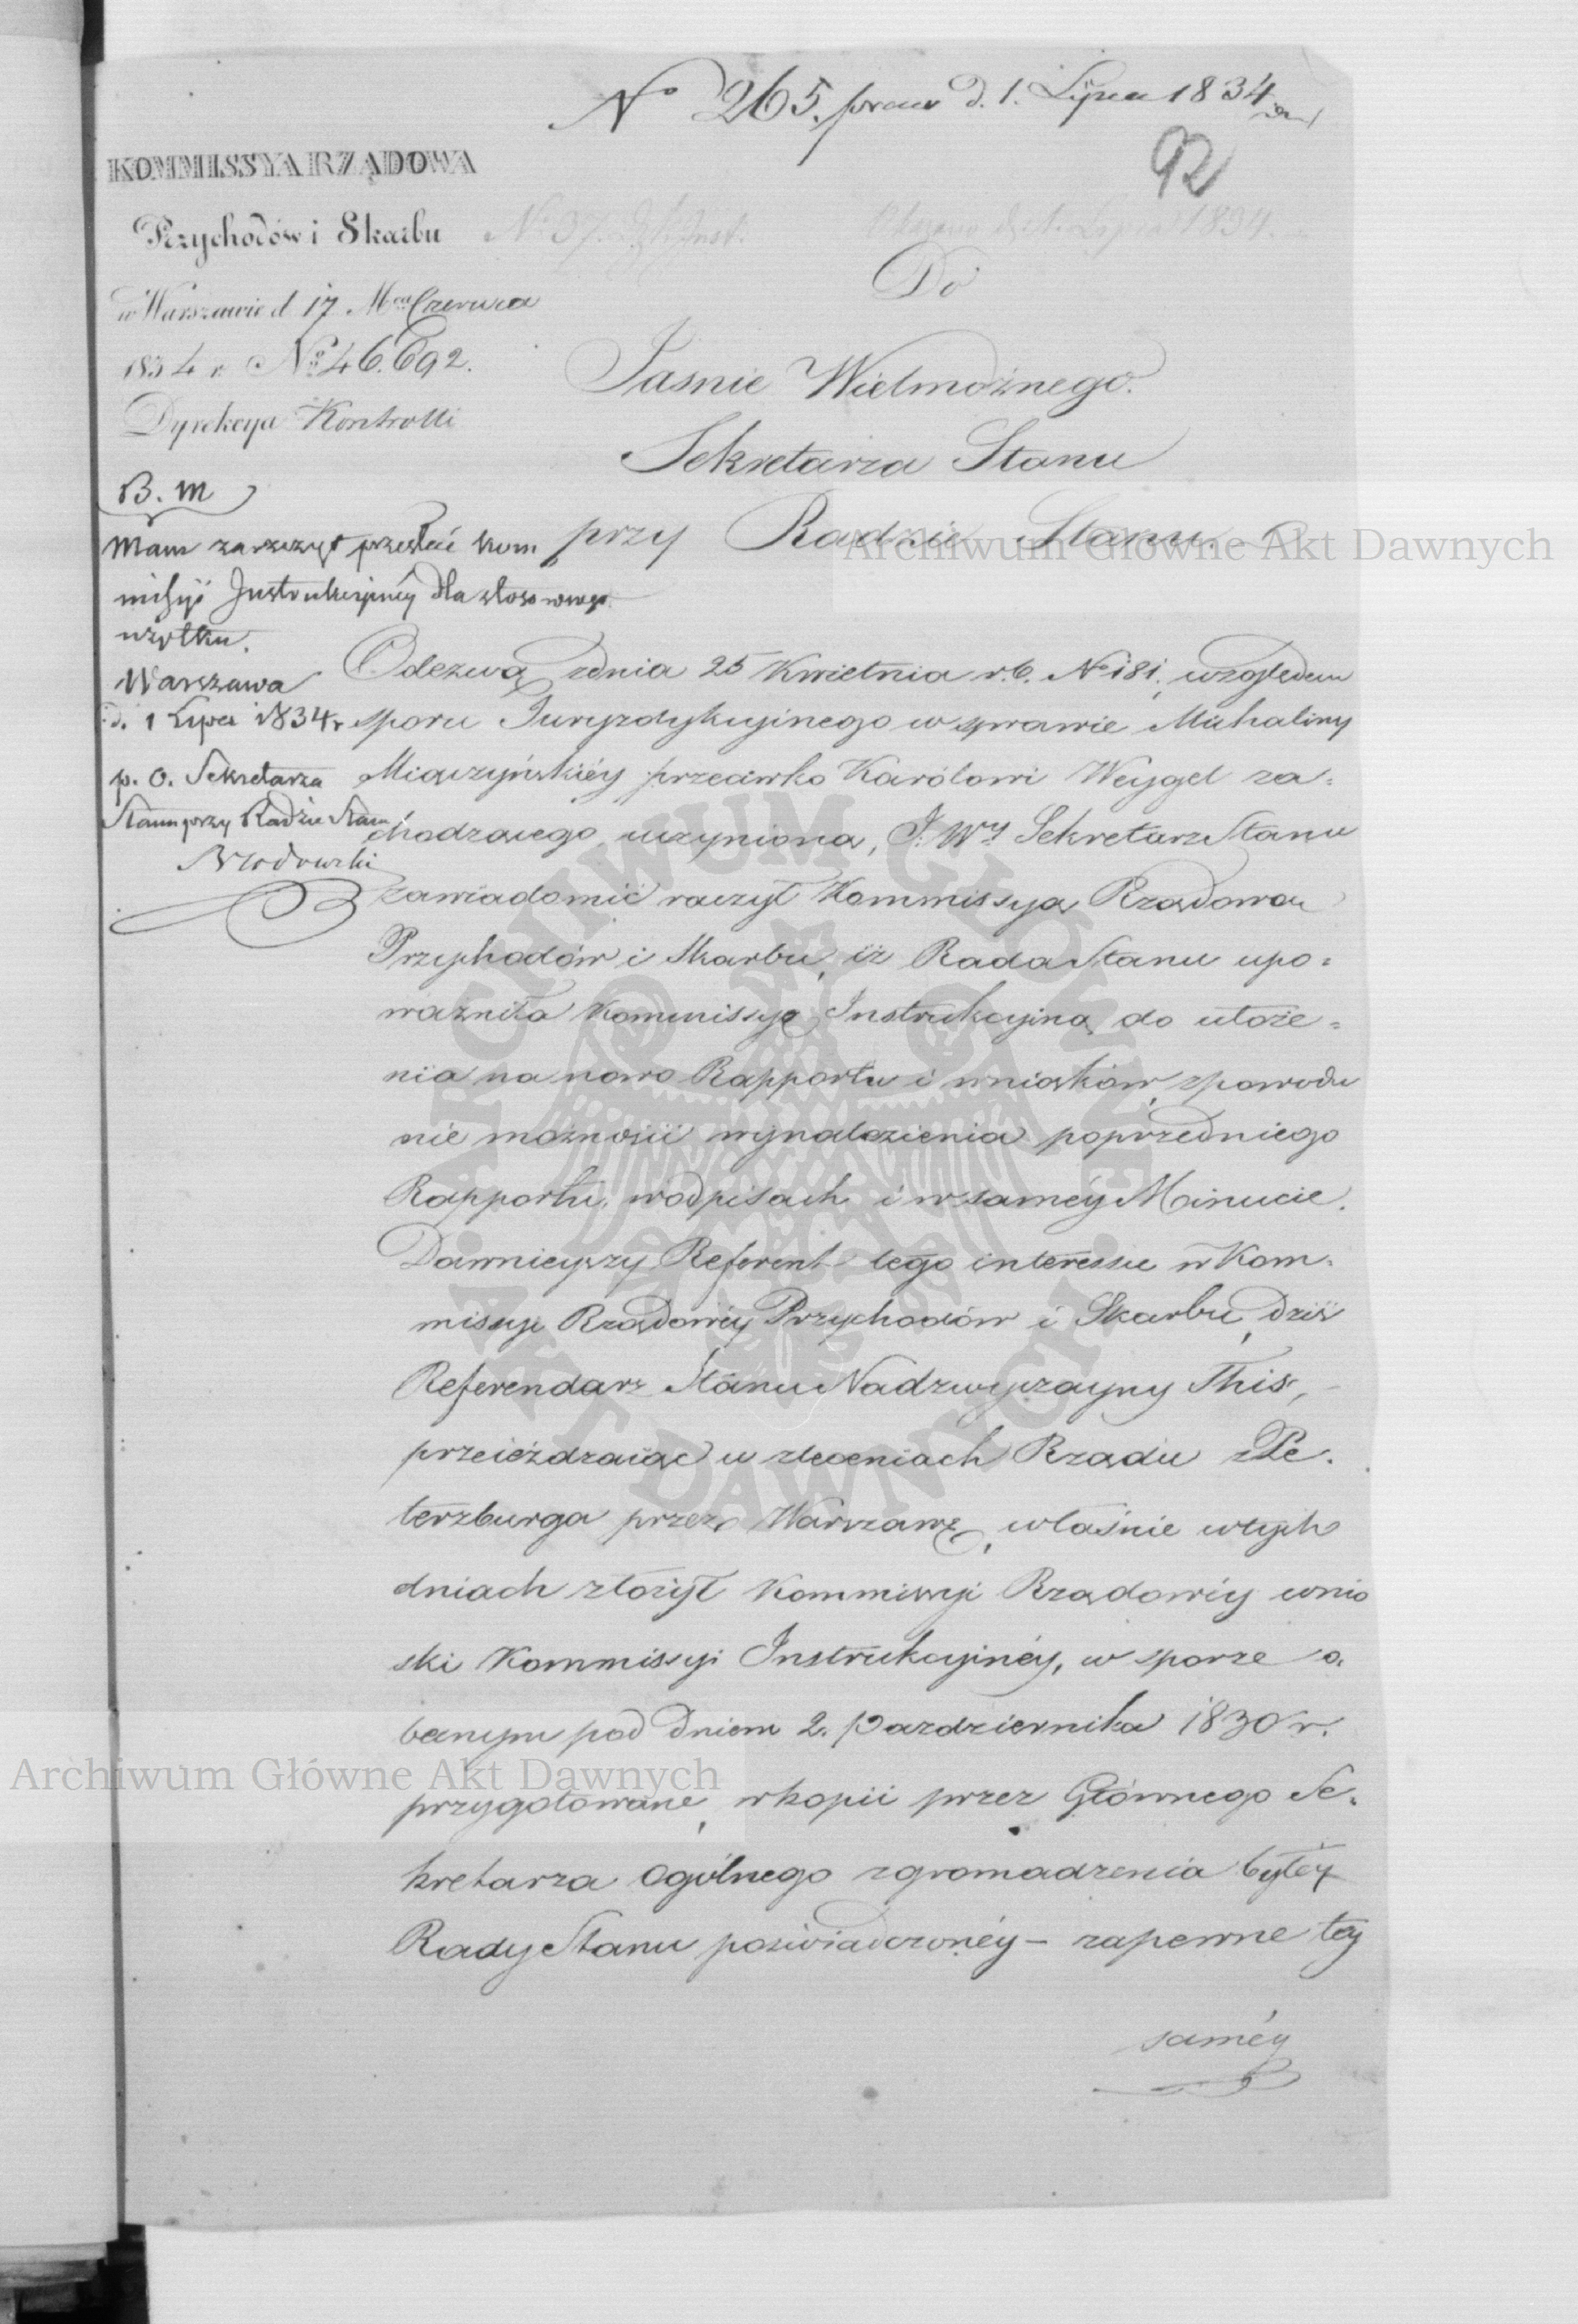 No 265. praes d. 1. Lipca 1834
92
KOMMISSYA RZĄDOWA
Przychodów i Skarbu
No 37. Inst. d. 1. Lipca 1834.
w Warszawie d 17 Mca Czerwca
1834 r. No 46.692.
Dyrekcya Kontrolli
Do
Jasnie Wielmożnego.
Sekretarza Stanu
przy Radzie Stanu.
B. M
Mam zaszczyt przesłać Kom
missyi Instrukcyiney dla stosownego
użytku.
Warszawa
d. 1 Lipca 1834 r
p. o. Sekretarza
Stanu przy Radzie Stanu
Brodowski
Odezwą zdnia 25 Kwietnia r.b. No 181, względem
sporu Juryzdykcyinego w sprawie Michaliny
Miączyńskiéy przeciwko Karólowi Weygel za=
chodzącego, uczynioną, J. Wy Sekretarz Stanu
zawiadomić raczył Kommissyą Rządową
Przychodów i Skarbu, iż Rada Stanu upo=
ważniła Kommissyę Instrukcyiną do ułoże=
nia na nowo Rapportu i wniosków, zpowodu
nie możności wynalezienia poprzedniego
Rapportu, wodpisach i w saméy Minucie.
Dawnieyszy Referent tego interessu w Kom=
missyi Rządowéy Przychodów i Skarbu, dziś
Referendarz Stanu Nadzwyczayny This,
przeieżdzaiąc w zleceniach Rządu z Pe=
terzburga przez Warszawę, właśnie wtych
dniach złożył Kommissyi Rządowéy wnio
ski Kommissyi Instrukcyinéy, w sporze o.
becnym pod dniem 2. Pazdziernika 1830 r.
przygotowane, wkopii przez Głównego Se=
kretarza Ogólnego zgromadzenia byłéy
Rady Stanu poświadczonéy – zapewne téy
saméy
Archiwum Główne Akt Dawnych
Archiwum Główne Akt Dawnych
ARCHIWUM GŁÓWNE AKT DAWNYCH